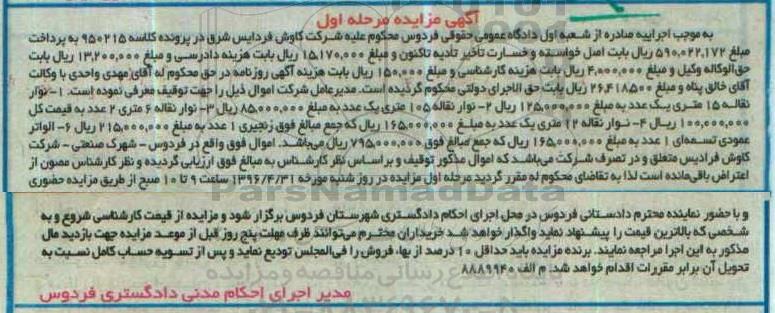 آگهی مزایده مرحله اول
به موجب اجراییه صادره از شعبه اول دادگاه عمومی حقوقی فردوس محکوم علیه شرکت کاوش فردایس شرق در پرونده کلاسه ۹۵۰۲۱۵ به پرداخت
مبلغ ۵۹۰,۰۲۲,۱۷۲ ریال بابت اصل خواسته و خسارت تأخیر تأدیه تاکنون و مبلغ ۱۵,۱۷۰,۰۰۰ ریال بابت هزینه دادرسی و مبلغ ۱۳,۲۰۰,۰۰۰ ریال بابت
حق‌الوکاله وکیل و مبلغ ۴,۰۰۰,۰۰۰ ریال بابت هزینه کارشناسی و مبلغ ۱۵۰,۰۰۰ ریال بابت هزینه آگهی روزنامه در حق محکوم له آقای مهدی واحدی با وکالت
آقای خالق پناه و مبلغ ۲۶,۴۱۸۵۰۰ ریال بابت حق الاجرای دولتی محکوم گردیده است. مدیرعامل شرکت اموال ذیل را جهت توقیف معرفی نموده است. ۱- نوار
نقاله ۱۵ متری یک عدد به مبلغ ۱۲۵,۰۰۰,۰۰۰ ریال ۲- نوار نقاله ۱۰۵ متری یک عدد به مبلغ ۸۵,۰۰۰,۰۰۰ ریال ۳- نوار نقاله ۶ متری ۲ عدد به قیمت کل
۱۰۰,۰۰۰,۰۰۰ ریال ۴- نوار نقاله ۱۲ متری یک عدد به مبلغ ۱۶۵,۰۰۰,۰۰۰ ریال که جمع مبالغ فوق زنجیری ۱ عدد به مبلغ ۲۱۵,۰۰۰,۰۰۰ ریال ۶- الواتر
عمودی تسمه‌ای ۱ عدد به مبلغ ۱۶۵,۰۰۰,۰۰۰ ریال که جمع مبالغ فوق ۷۹۵,۰۰۰,۰۰۰ ریال می‌باشد. اموال فوق واقع در فردوس - شهرک صنعتی - شرکت
کاوش فرادیس متعلق و در تصرف شرکت می‌باشد که اموال مذکور توقیف و بر اساس نظر کارشناس به مبالغ فوق ارزیابی گردیده و نظر کارشناس مصون از
اعتراض باقی‌مانده است لذا به تقاضای محکوم له مقرر گردید مرحله اول مزایده در روز شنبه مورخه ۱۳۹۶/۴/۳۱ ساعت ۹ تا ۱۰ صبح از طریق مزایده حضوری
و با حضور نماینده محترم دادستانی فردوس در محل اجرای احکام دادگستری شهرستان فردوس برگزار شود و مزایده از قیمت کارشناسی شروع و به
شخصی که بالاترین قیمت را پیشنهاد نماید واگذار خواهد شد خریداران محترم می‌توانند ظرف مهلت پنج روز قبل از موعد مزایده جهت بازدید مال
مذکور به این اجرا مراجعه نمایند. برنده مزایده باید حداقل ۱۰ درصد از بها، فروش را فی‌المجلس تودیع نماید و پس از تسویه حساب کامل نسبت به
تحویل آن برابر مقررات اقدام خواهد شد. م الف ۸۸۸۹۹۴۰
مدیر اجرای احکام مدنی دادگستری فردوس
ParsNamadData